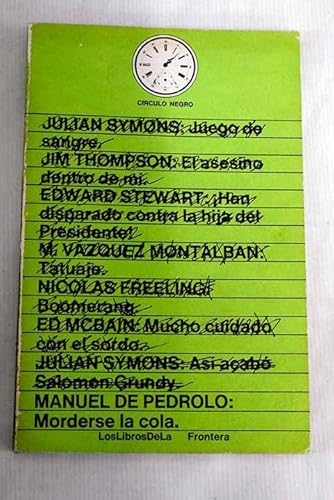 CIRCULO NEGRO
JULIAN SYMONS: Juego de
sangre.
JIM THOMPSON: El asesino
dentro de mí.
EDWARD STEWART: ¡Han
disparado contra la hija del
Presidente!
M. VAZQUEZ MONTALBAN:
Tatuaje.
NICOLAS FREELING:
Boomerang.
ED MCBAIN: Mucho cuidado
con el sordo.
JULIAN SYMONS: Así acabó
Salomon Grundy.
MANUEL DE PEDROLO:
Morderse la cola.
LosLibrosDeLa Frontera